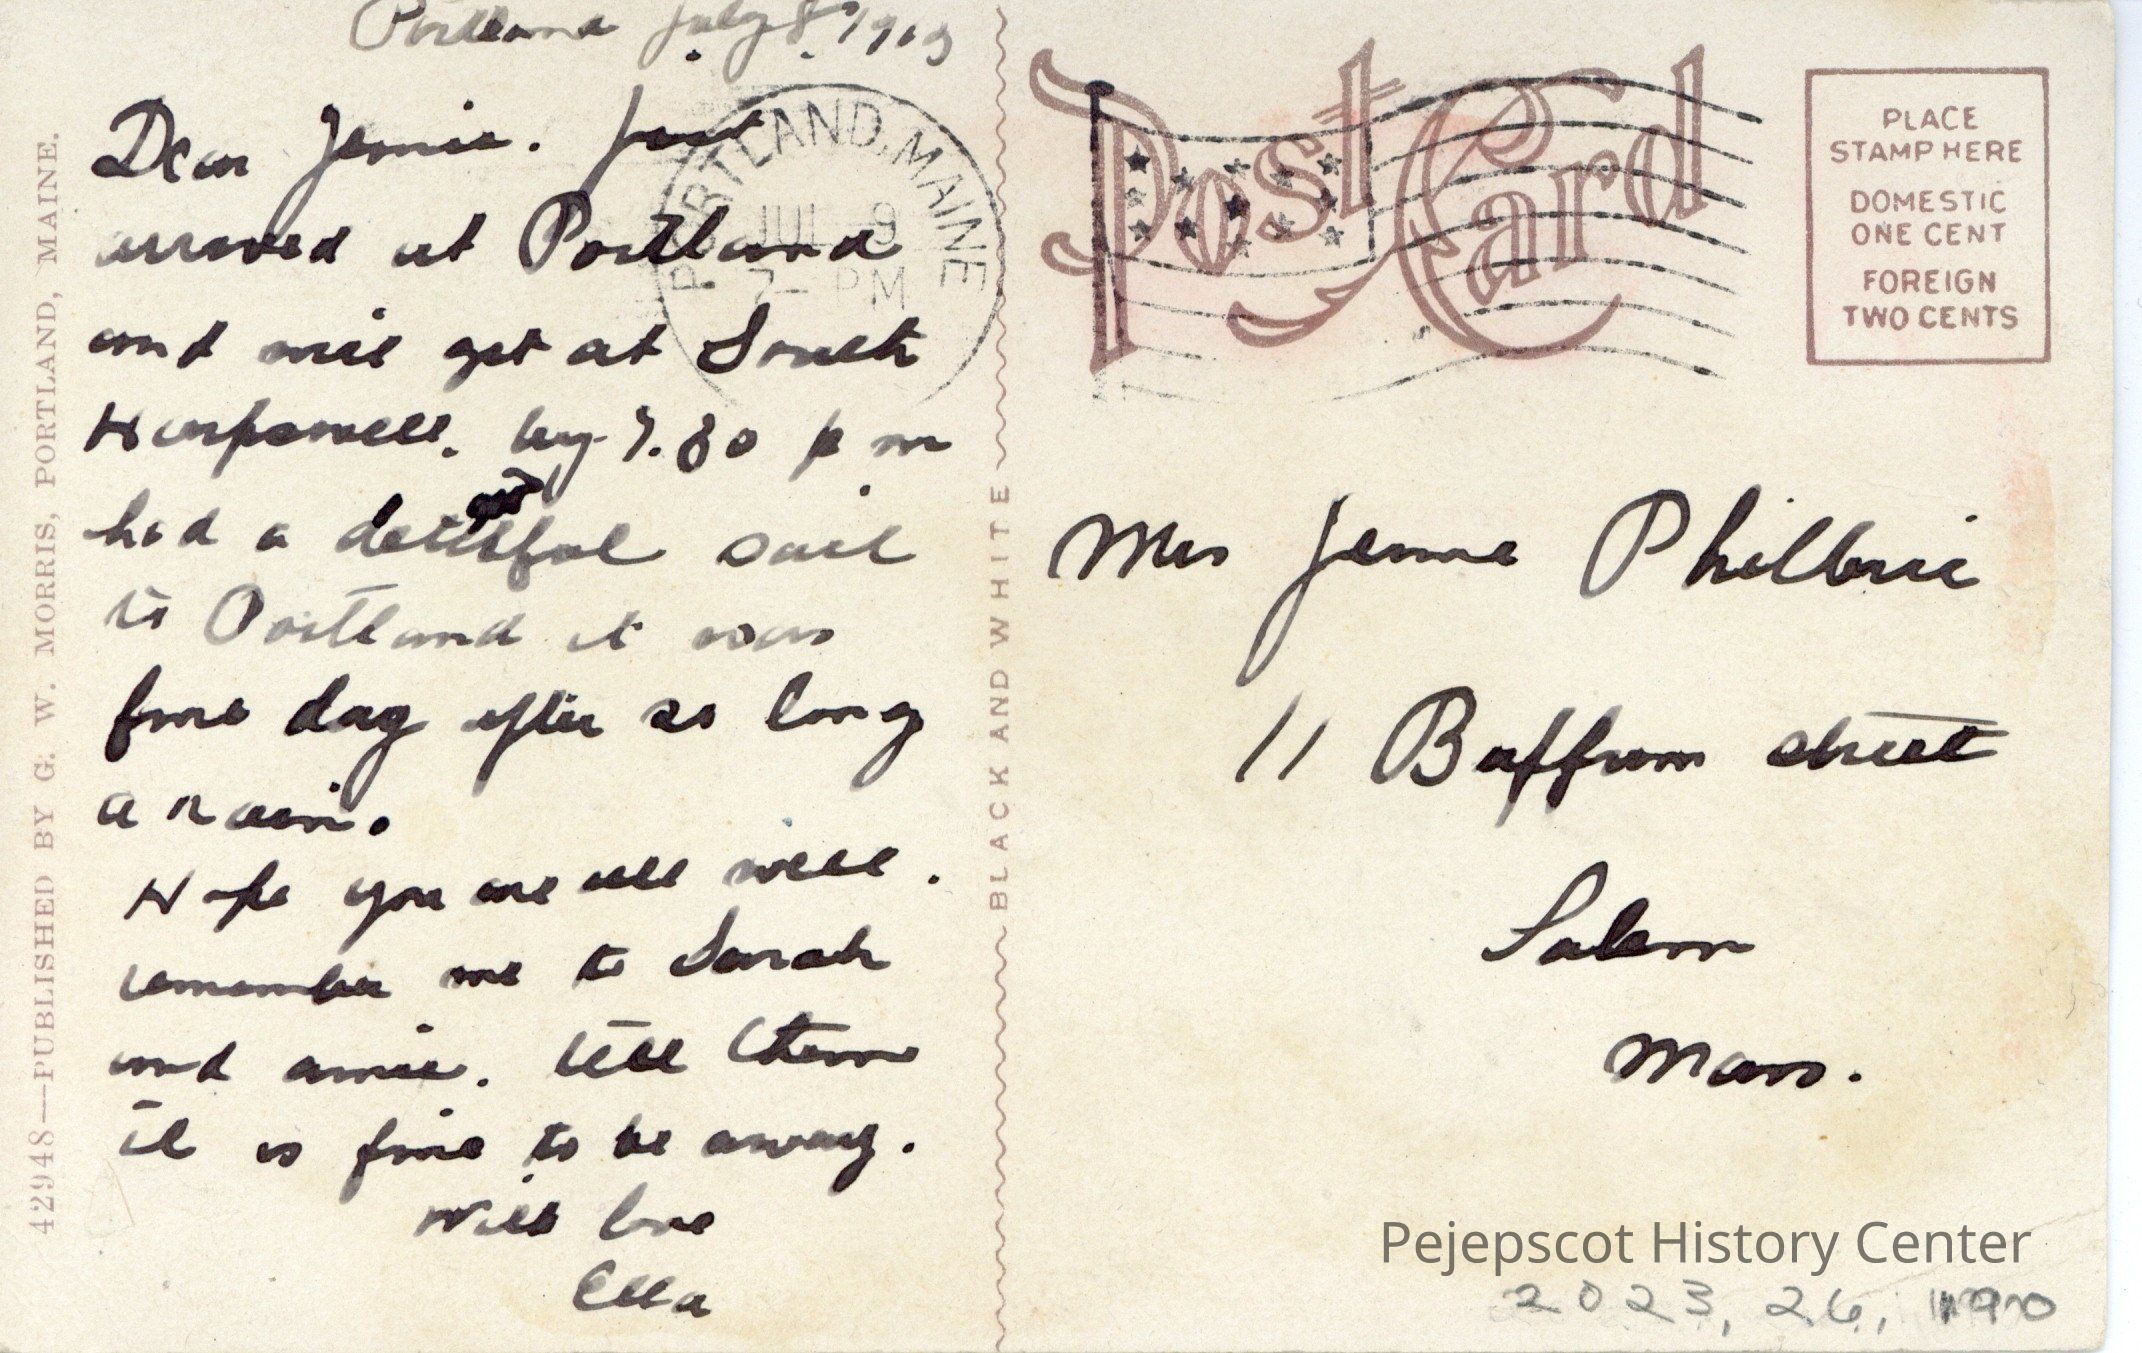 Portland July 8 1913
Dear Jennie. just
arrived at Portland
and will get at South
Harpswell. by 7.30 p m
had a delitful sail
to Portland it was
fine day after so long
a rain.
Hope you are all well.
remember me to Sarah
and amie. tell them
it is fine to be away.
With love
Ella
42948—PUBLISHED BY G. W. MORRIS, PORTLAND, MAINE.
PORTLAND, MAINE
JUL 9
7 - PM
BLACK AND WHITE
Post Card
PLACE
STAMP HERE
DOMESTIC
ONE CENT
FOREIGN
TWO CENTS
Mrs Jennie Philbric
11 Buffum street
Salem
Mass.
Pejepscot History Center
2023, 26,